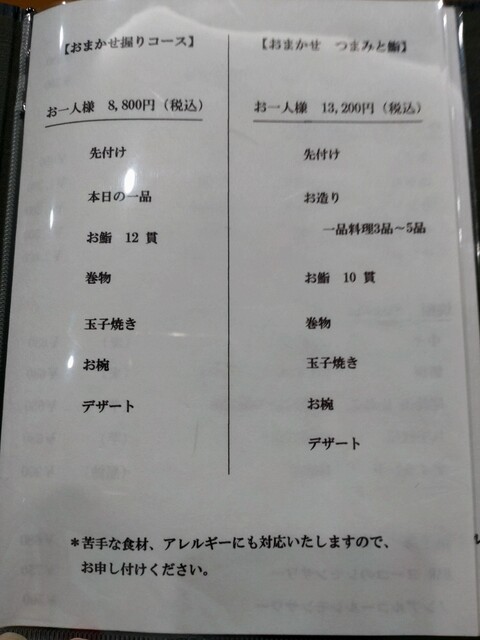 【おまかせ握りコース】
お一人様 8,800円（税込）
先付け
本日の一品
お鮨 12 貫
巻物
玉子焼き
お椀
デザート
【おまかせ つまみと鮨】
お一人様 13,200円（税込）
先付け
お造り
一品料理3品～5品
お鮨 10 貫
巻物
玉子焼き
お椀
デザート
＊苦手な食材、アレルギーにも対応いたしますので、
お申し付けください。